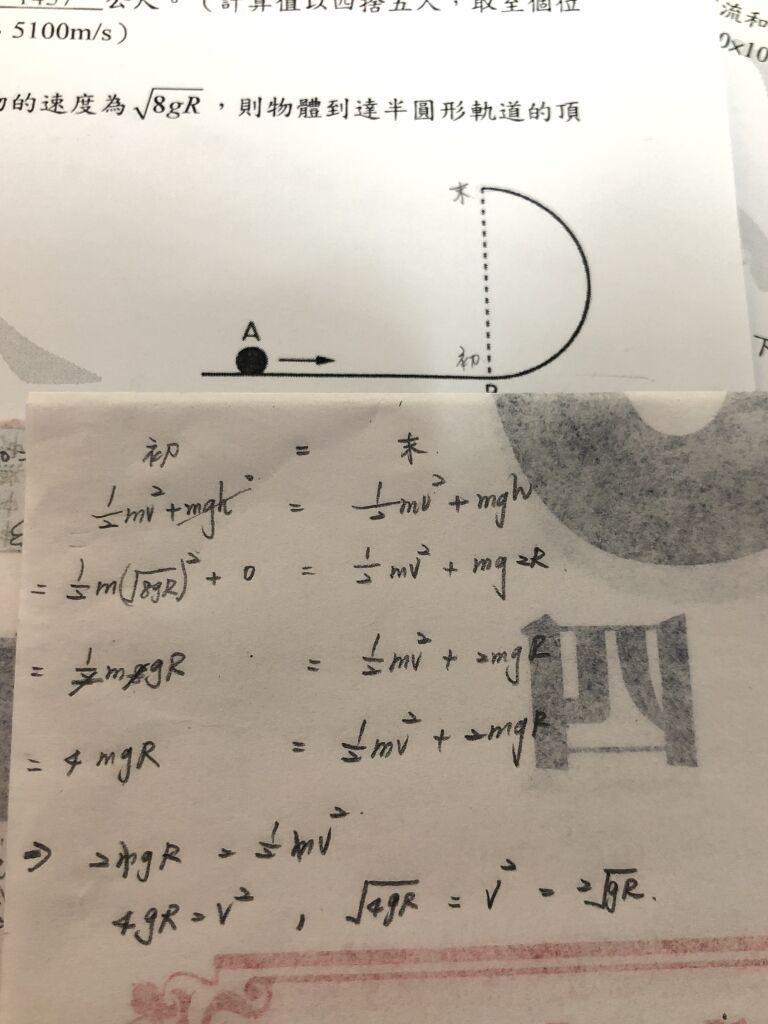 公尺。(計算值以四捨五入,取至個位
5100m/s)
流和
0x10
的速度為 √8gR ,則物體到達半圓形軌道的頂
末
A
初
初 = 末
½mv² + mgh⁰ = ½mv² + mgh
= ½m(√8gR)² + 0 = ½mv² + mg2R
= ½m8gR = ½mv² + 2mgR
= 4mgR = ½mv² + 2mgR
⇒ 2mgR = ½mv²
4gR = v² , √4gR = v² = 2√gR.
四